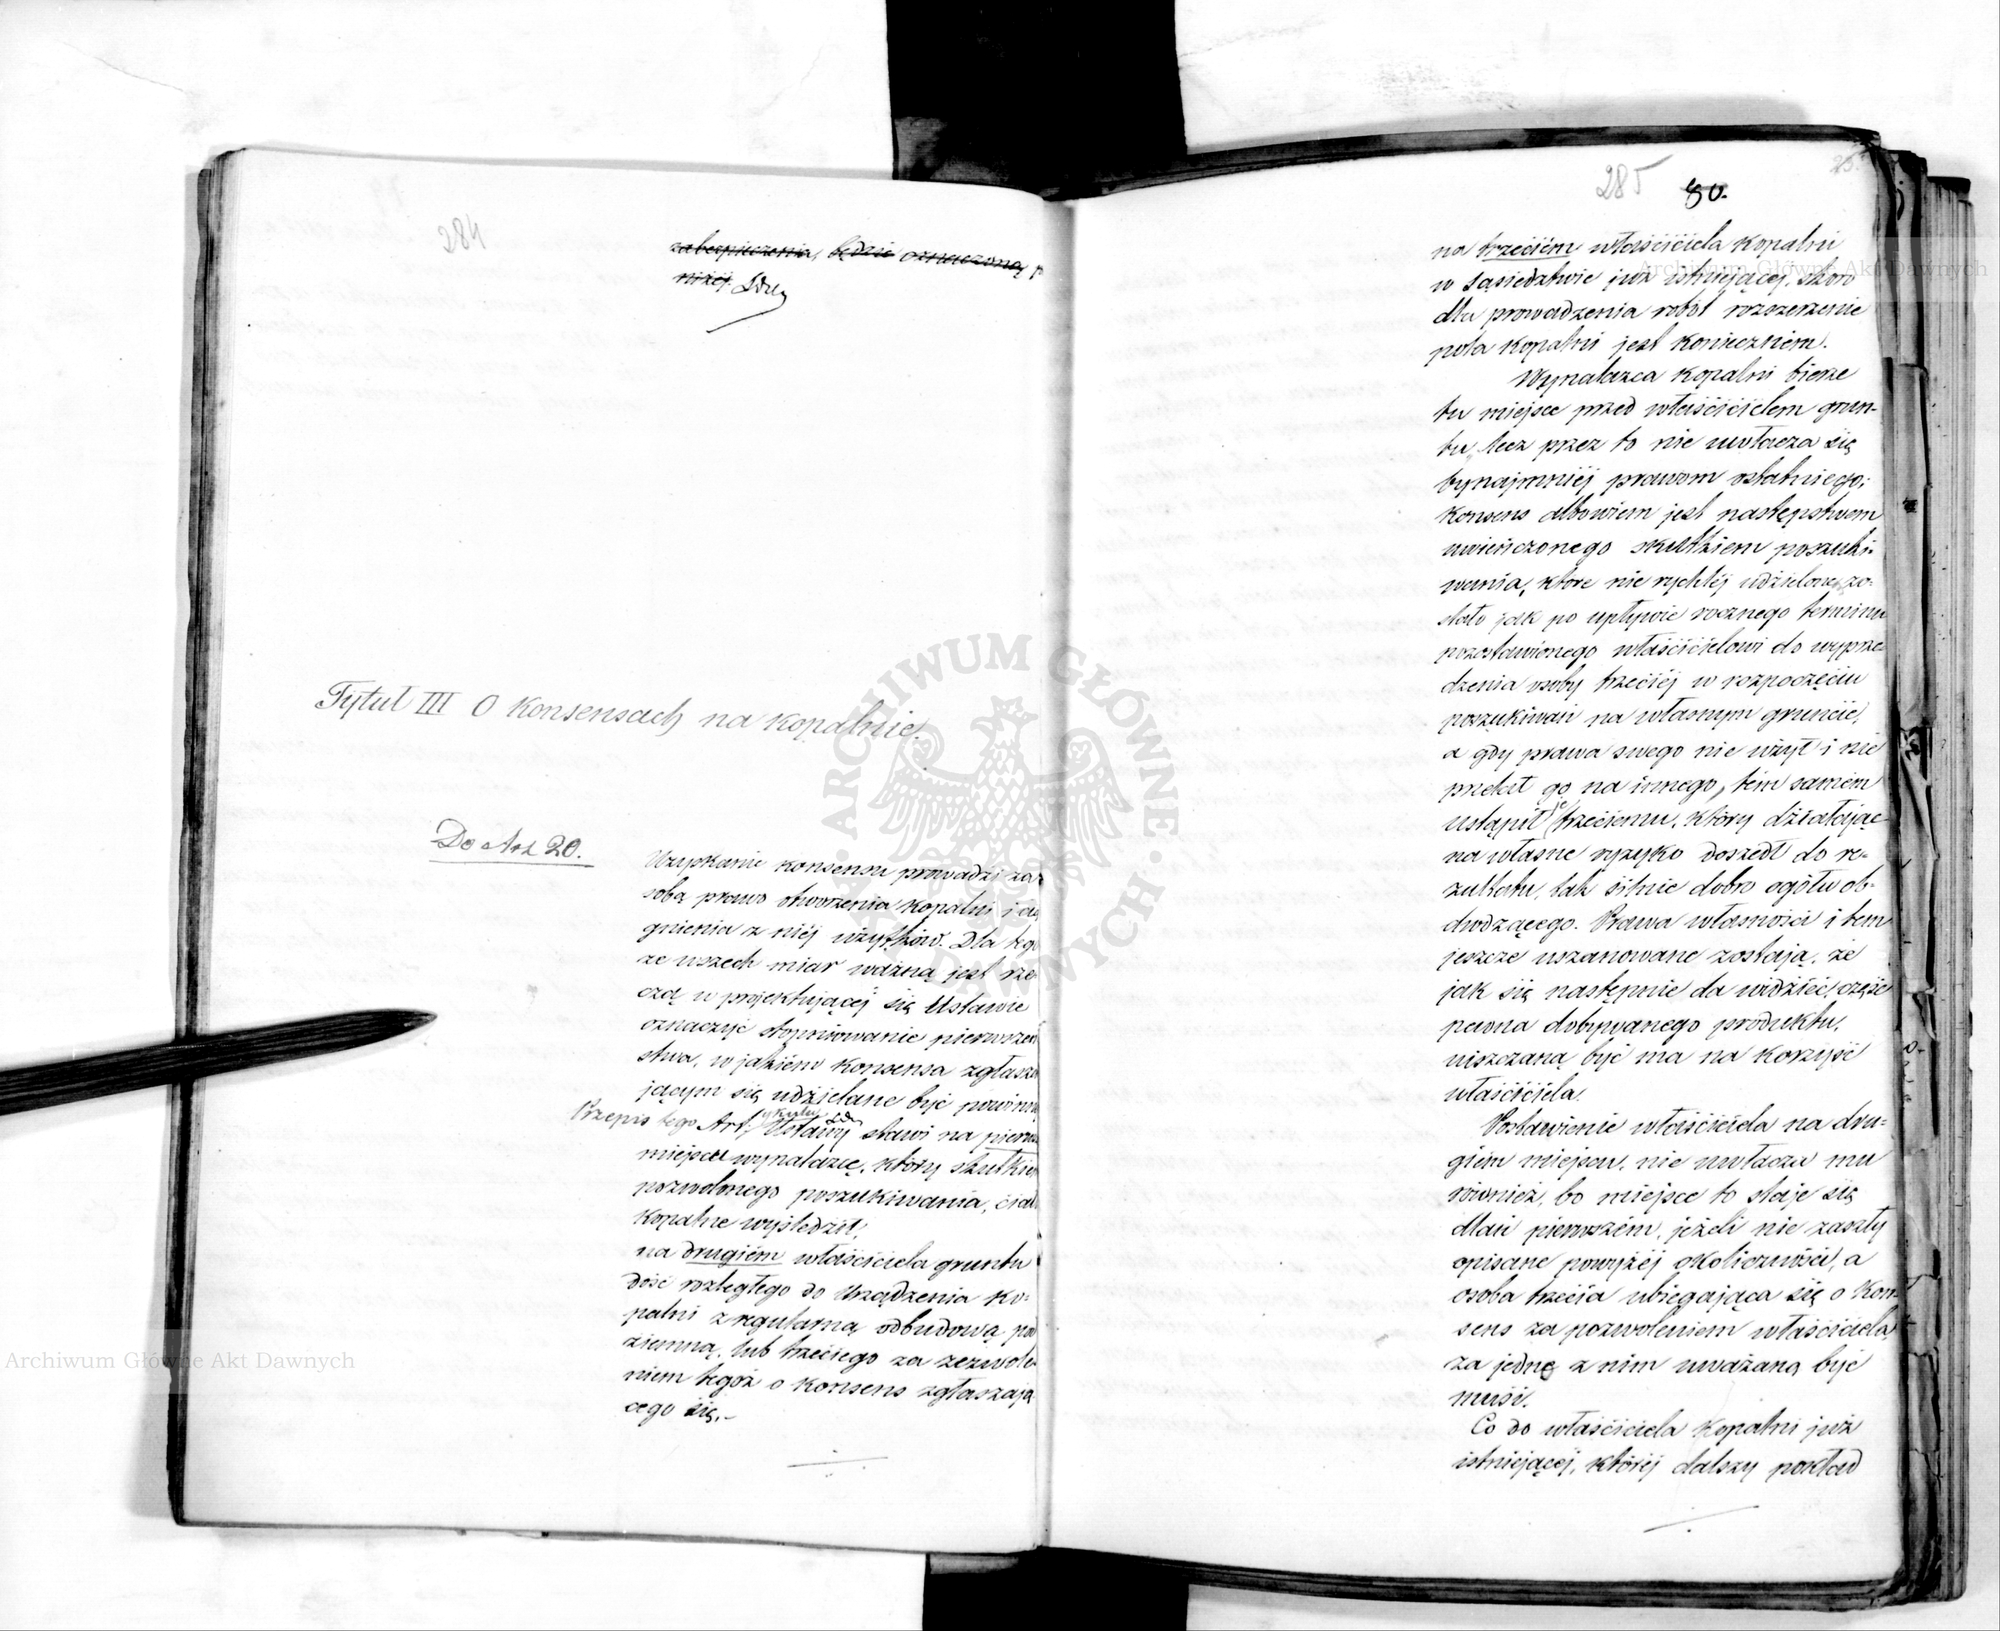 284
zabezpieczenia, będzie oznaczoną p
niżej.
Tytuł III O Konsensach na kopalnie.
Do Art 20.
Uzyskanie konsensu prowadzi za
sobą prawo otworzenia kopalni i cią
gnienia z niéj użytków. Dla tego
ze wszech miar ważną jest rze
czą w projektującéj się Ustawie
oznaczyć stopniowanie pierwszeń
stwa, w jakiém konsensa zgłasza
jącym się udzielane być powinny
Przepis tego Art. ykułu Ustawy stawi na pierwsze
miejsce wynalazcę, który skutkiem
pozwolonego poszukiwania, ciała
kopalne wyśledził;
na drugiém właściciela gruntu
dość rozległego do urządzenia ko-
palni z regularną odbudową pod
ziemną, lub trzeciego za zezwole-
niem tegóż o konsens zgłaszają
cego się.–
285
80.
na trzeciém właściciela kopalni
w sąsiedztwie już istniejącéj, skoro
dla prowadzenia robót rozszerzenie
pola kopalni jest konieczném.
Wynalazca kopalni bierze
tu miejsce przed właścicielem grun-
tu, lecz przez to nie uwłacza się
bynajmniéj prawom ostatniego;
konsens albowiem jest następstwem
uwieńczonego skutkiem poszuki-
wania, które nie rychléj udzielone zo-
stało jak po upływie rocznego terminu
pozostawionego właścicielowi do wyprze-
dzenia osoby trzeciéj w rozpoczęciu
poszukiwań na własnym gruncie,
a gdy prawa swego nie użył i nie
przelał go na innego, tém samém
ustąpił je trzeciemu, który działając
na własne ryzyko doszedł do re-
zultatu, tak silnie dobro ogółu ob-
chodzącego. Prawa własności i tem
jeszcze uszanowane zostają, że
jak się następnie da widzieć, część
pewna dobywanego produktu,
uiszczaną być ma na korzyść
właściciela.
Postawienie właściciela na dru-
giém miejscu, nie uwłacza mu
również, bo miejsce to staje się
dlań pierwszém, jeżeli nie zaszły
opisane powyżéj okoliczności, a
osoba trzecia ubiegająca się o kon-
sens za pozwoleniem właściciela,
za jedną z nim uważaną być
musi.
Co do właściciela kopalni już
istniejącéj, któréj dalszy pokład
ARCHIWUM GŁÓWNE AKT DAWNYCH
Archiwum Główne Akt Dawnych
Archiwum Główne Akt Dawnych